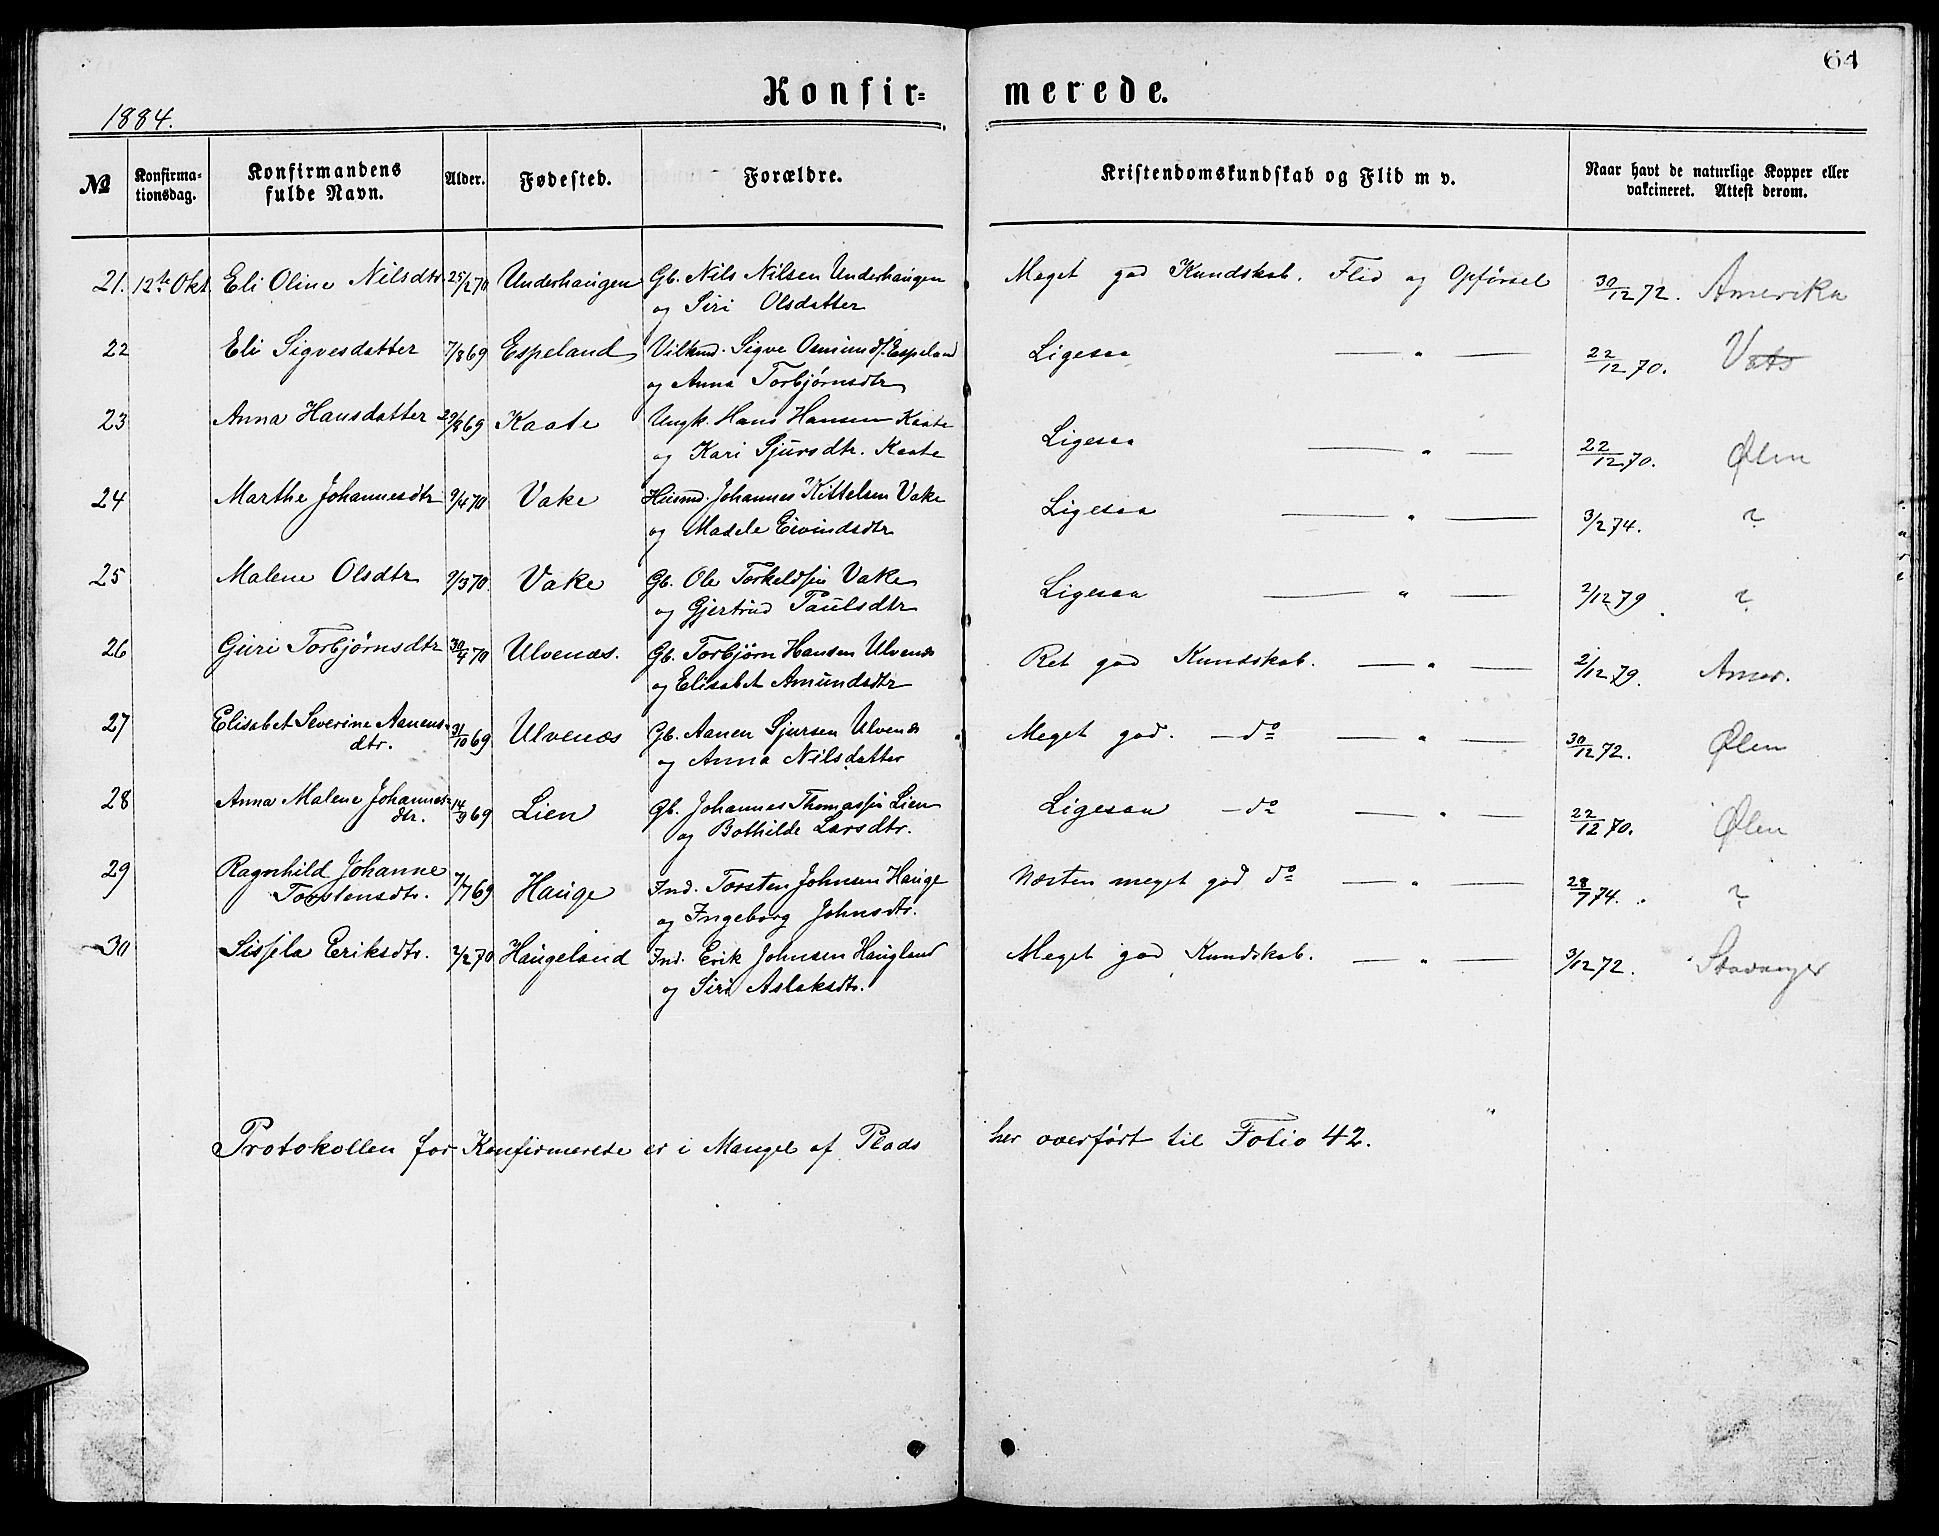 64
Konfir= merede.
1884.
No Konfirma-tionsdag. Konfirmandens fulde Navn. Alder. Fødested. Forældre. Kristendomskundskab og Flid m v. Naar havt de naturlige Kopper eller vakcineret. Attest derom.
21. 12te Okt. Eli Oline Nilsdtr. 25/2 70 Underhaugen Gb. Nils Nilsen Underhaugen Meget god Kundskab. Flid og Opførsel 30/12 72. Amerika
og Siri Olsdatter
22 Eli Sigvesdatter 7/8 69 Espeland Vilkmd. Sigve Osmunds. Espeland Ligesaa — " — 22/12 70. Vats
og Anna Torbjørnsdtr
23 Anna Hansdatter 29/8 69 Kaate Ungk. Hans Hansen Kaate Ligesaa — " — 22/12 70. Ølen
og Kari Sjursdtr. Kaate
24 Marthe Johannesdtr 9/4 70 Vake Husmd. Johannes Kittelsen Vake Ligesaa — " — 3/2 74. ?
og Madele Eivindsdtr
25 Malene Olsdtr 9/3 70. Vake Gb. Ole Torkeldsen Vake Ligesaa — " — 2/12 79. ?
og Gjertrud Paulsdtr
26 Guri Torbjørnsdtr 30/4 70 Ulvenæs. Gb. Torbjørn Hansen Ulvenæs Ret god Kundskab. — " — 2/12 79. Amer.
og Elisabet Amundsdtr
27 Elisabet Severine Aanens- 31/10 69 Ulvenæs Gb. Aanen Sjursen Ulvenæs Meget god. — do — " — 30/12 72. Ølen
dtr. og Anna Nilsdatter
28 Anna Malene Johannes- 14/9 69 Lien Gb. Johannes Thomassen Lien Ligesaa — do — " — 22/12 70. Ølen
dtr. og Bothilde Larsdtr.
29 Ragnhild Johanne 7/7 69 Hauge Ind. Torsten Johnsen Hauge Næsten meget god do — " — 28/7 74. ?
Torstensdtr. og Ingeborg Johnsdtr.
30 Sissela Eriksdtr. 2/2 70 Haugeland Ind. Erik Johnsen Haugland Meget god Kundskab. — " — 3/12 72. Stavanger
og Siri Aslaksdtr.
Protokollen for Konfirmerede er i Mangel af Plads her overført til Folio 42.